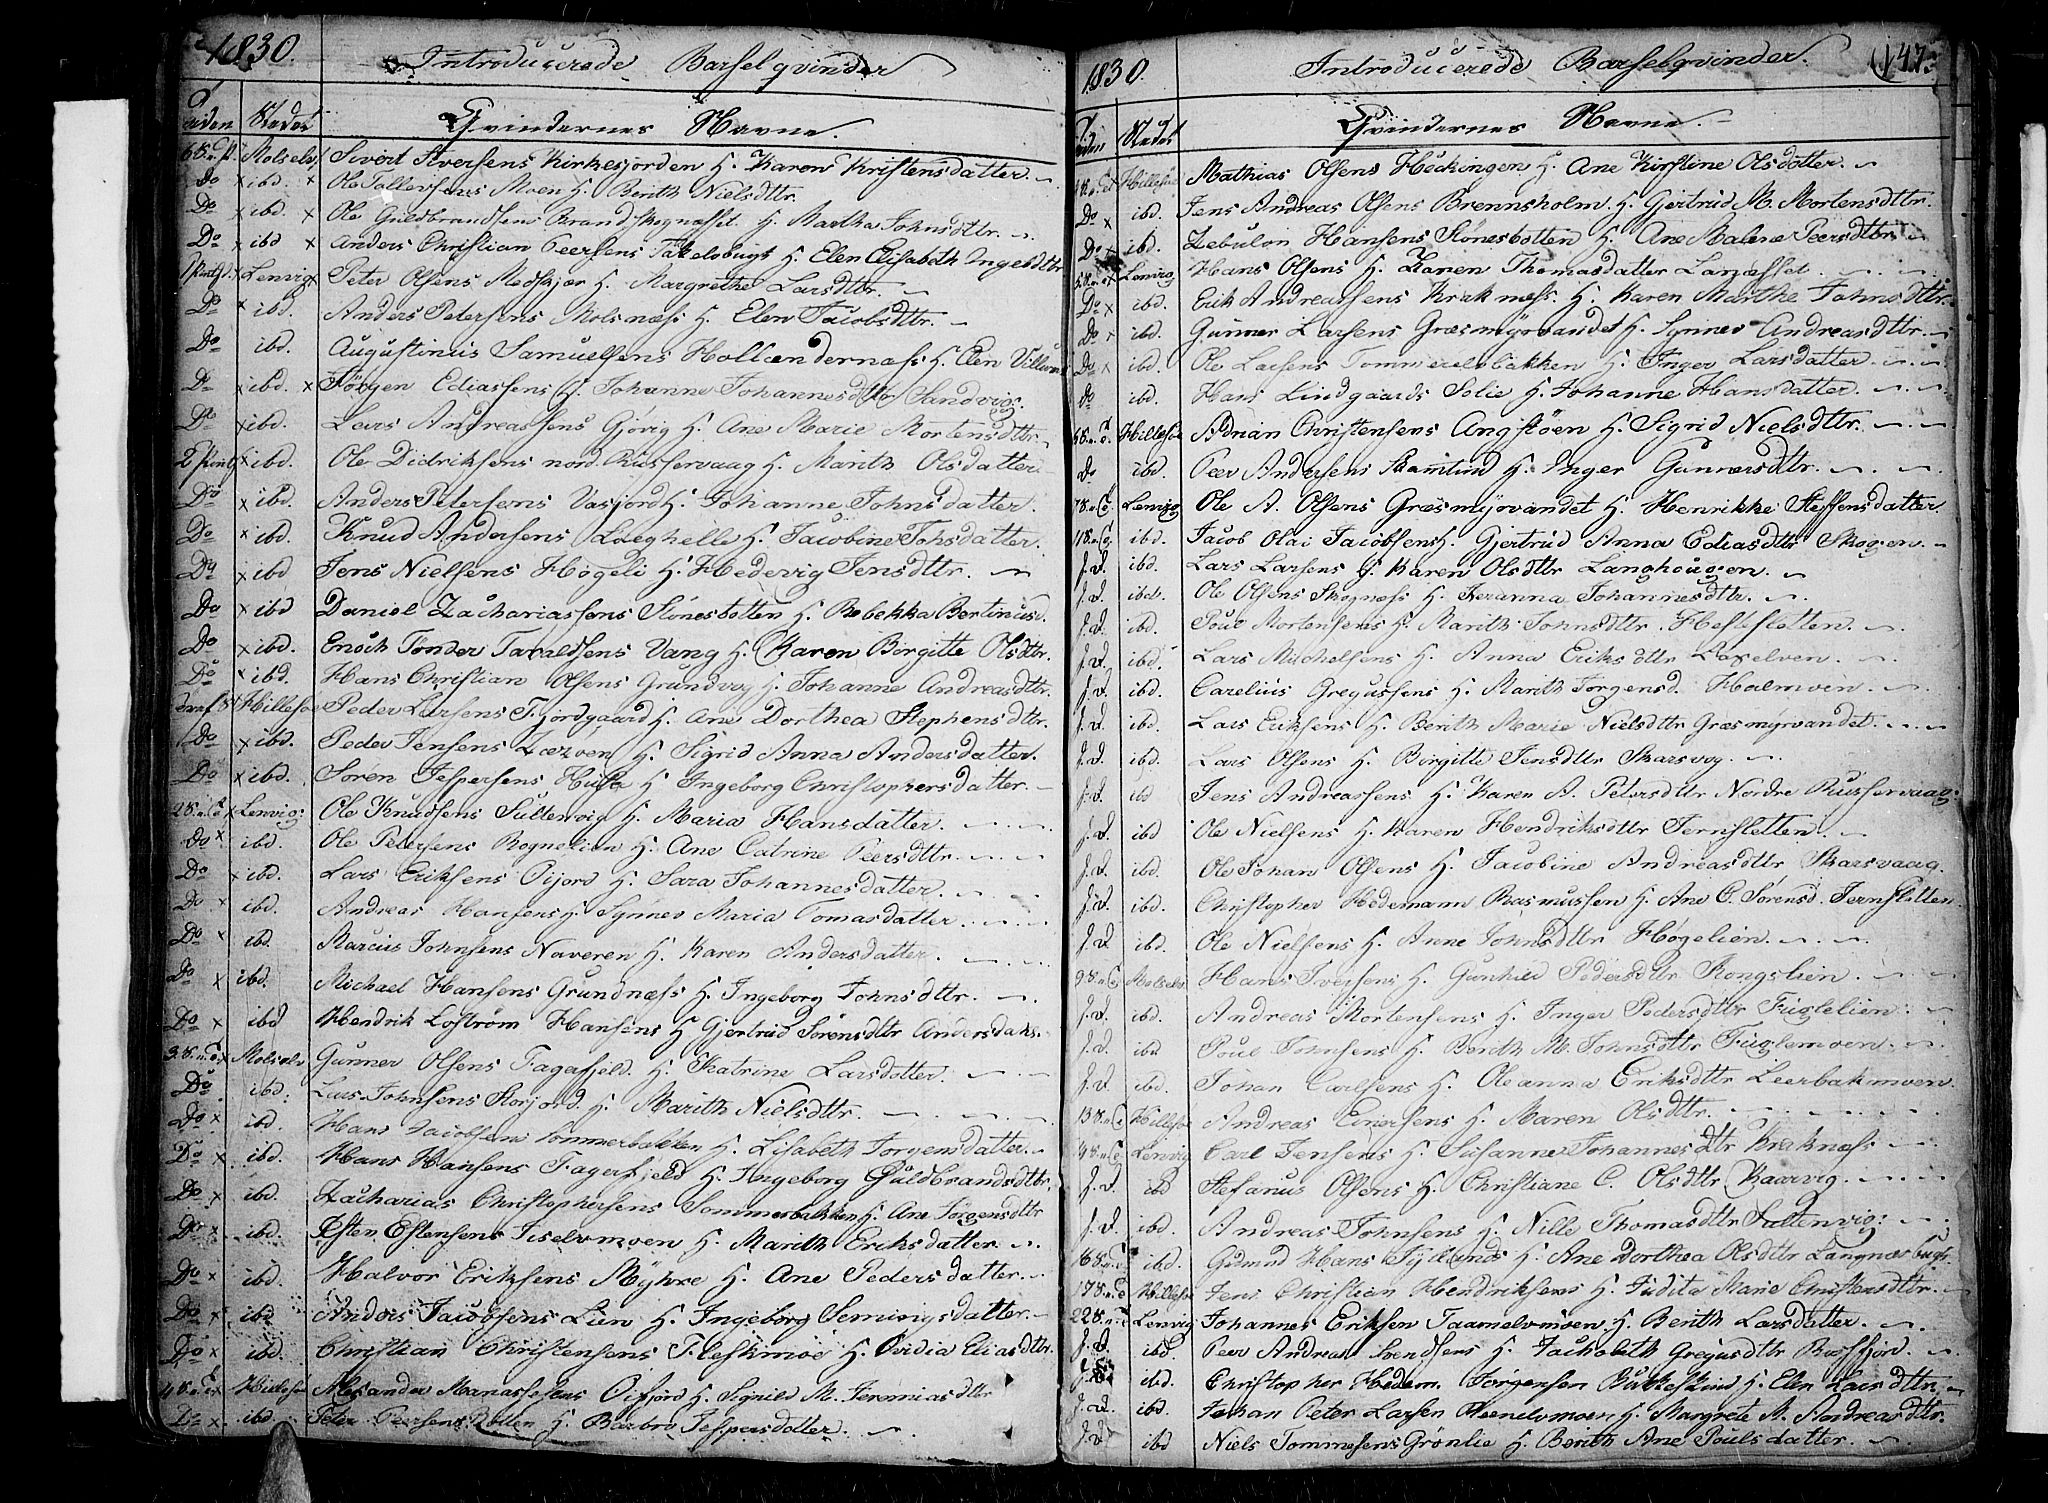 1830. Introducerede Barselqvinder
Tiden Stedet Qvindernes Navne.
6 S. e. P. Molselv Sivert Iversens Kirkesjorden H. Karen Kristensdatter.
Do x ibd. x Ole Tollevsens Moen H. Berith Nielsdttr.
Do x ibd. x Ole Guldbrandsens Brandskognæsset H. Martha Johnsdttr.
Do x ibd x Anders Christian Peersens Takelvbugt H. Elen Elisabeth Ingebdttr
x Lenvig x Peter Olsens Medskjer H. Margrethe Larsdttr.
Do x ibd. Anders Petersens Molsnæss H. Elen Jacobsdttr.
Do ibd. Augustinus Samuelsens Hollændernæss H. Elen
Do x ibd. x Jörgen Ediassens H. Johanne Johannesdttr Sandvig.
Do x ibd. Lars Andreassens Gjövig H. Ane Marie Mortensdttr.
2 Pints x ibd. Ole Didriksens nord. Russevaag H. Marith Olsdatter.
Do x ibd. Anders Petersens Vasjord H. Johanne Johnsdatter.
Do x ibd. Knud Andersens Læghelle H. Jacobine Johsdatter.
Do x ibd Jens Nielsens Högeli H. Hedevig Jensdttr.
Do x ibd Daniel Zachariassens Sönesbotten H. Rebekka Bertinusd.
Do x ibd. Enoch Tonder Taraldsens Vang H. Karen Birgitte Olsdttr.
Do x ibd. Hans Christian Olsens Grundvog H. Johanne Andreasdttr.
Hillesøe Peder Larsens Fjordgaard H. Ane Dorthea Stephensdttr.
Do x ibd. Peder Jensens H. Sigrid Anna Andersdatter.
Do x ibd. Sören Jespersens H. Ingeborg Christophersdatter.
2 S. e. T. x Lenvig Ole Knudsens Sultenvig H. Maria Hansdatter.
Do x ibd. Ole Petersens Rognelien H. Ane Catrine Peersdttr.
Do x ibd. Lars Eriksens Gijord H. Sara Johannesdatter.
Do x ibd. Andreas Hansens H. Synnev Maria Tomasdatter.
Do x ibd. Marcus Johnsens Naveren H. Karen Andersdatter.
Do x ibd. Michael Hansens Grundnæss H. Ingeborg Johnsdttr.
Do x ibd Hendrik Loström Hansens H. Gjertrud Sörensdttr
3 S. e. T. x Molselv Gunner Olsens Fagerfjeld. H. Katrine Larsdatter.
Do ibd. Lars Johnsens Storjord. H. Marith Nielsdttr.
Do x ibd. Hans Jacobsens Sommerbakken H. Lisabeth Jorgensdatter.
Do x ibd. Hans Hansens Fagerfjeld H. Ingeborg Guldbrandsdttr.
Do x ibd. Zacharias Christophersens Sommerbakken H. Ane Jörgensdttr
Do x ibd. Østen Estensens H. Marith Eriksdatter.
Do x ibd. Halvor Eriksens Myhre H. Ane Pedersdatter.
Do x ibd Anders Jacobsens Lien H. Ingeborg Semingsdatter.
Do x ibd. Christian Christensens Fleskmoe H. Ovidia Eliasdttr.
4 S. e. T. x Hillesøe Alexander Manassesens Gifford H. Signild M. Jeremiasdttr
Do x ibd. Peter Peersens Botten H. Barbro Jespersdatter.
1830. Introducerede Barselqvinder. 147.
Tiden Stedet Qvindernes Navne.
Hillesøe Mathias Olsens Hockingen H. Ane Kirstine Olsdatter.
Do x ibd. Jens Andreas Olsens Brennsholm. H. Gjertrud M. Mortensdttr.
Do x ibd. Zebulon Hansens Sönesbotten H. Ane Malene Peersdttr.
5 S. e. T. x Lenvig Hans Olsens H. Karen Thomasdatter Larnæsset.
Do x ibd. Erik Andreassens Kraknæss. H. Karen Marthe Johnsdttr.
Do x ibd. Gunner Larsens Græsmyrvandet H. Synnev Andreasdttr.
Do x ibd. Ole Larsens Tommerelvbakken H. Inger Larsdatter.
Do ibd. Hans Lindgaards Solie H. Johanne Hansdatter.
6 S. e. T. Hillesøe Adrian Christensens Angstöen H. Sigrid Nielsdttr.
Do ibd. Peer Andersens Skamtind H. Inger Gunnersdttr.
7 S. e. T. Lenvig Ole A. Olsens Græsmyrvandet H. Henrikke Steffensdatter.
ibd. Jacob Olai Jacobsens H. Gjertrud Anna Ediasdttr Skogen.
f. d. ibd. Lars Larsens H. Karen Olsdttr Langhougen.
f. d. ibd. Ole Olsens Skognæss H. Johannesdttr.
f. d. ibd. Poul Mortensens H. Marith Johnsdttr. Hestsletten.
f. d. ibd. Lars Michelsens H. Anna Eriksdttr Laxelven.
f. d. ibd. Carelius Gregussens H. Marith Jorgensd. Holmven.
f. d. ibd. Lars Eriksens H. Berith Marie Nielsdttr Græsmyrvandet.
f. d. ibd. Lars Olsens H. Birgitte Jensdttr Skarsvog.
f. d. ibd Jens Andreassens H. Karen A. Petersdttr Nordre Russevaag.
f. d. ibd Ole Nielsens H. Karen Hendriksdttr Jernsletten.
f. d. ibd. Ole Johan Olsens H. Jacobine Andreasdttr Skarsvaag.
f. d. ibd. Christopher Hedemann Rasmussen H. Ane C. Sörensd. Jernsletten.
f. d. ibd. Ole Nielsens H. Anne Johnsdttr Högelien.
9 S. e. T. Molselv Hans Iversens H. Gunhild Pedersdttr Kongslien.
f. d. ibd. Andreas Mortensens H. Inger Pedersdttr Fuglelien.
f. d. ibd Poul Johnsens H. Berith M. Johnsdttr Fuglemoen.
f. d. ibd. Johan Carlsens H. Oleanna Eriksdttr Leerbakmoen.
13 S. e. T. Hillesøe Andreas Einersens H. Maren Olsdttr.
Lenvig Carl Jensens H. Susanne Johannesdttr Kraknæss
f. d. ibd Stefanus Olsens H. Christiane C. Olsdttr Kaarvig.
f. d. ibd. Andreas Johnsens H. Nille Thomasdttr Sultenvig.
16 S. e. T. ibd. Gudmund Hans H. Ane Dorthea Olsdttr Langnæsbugt.
17 S. e. T. Hillesøe Jens Christian Hendriksens H. Judita Marie Christensdttr.
22 S. e. T. Lenvig Johannes Eriksen Taamelvmoen H. Berith Larsdatter.
f. d. ibd. Peer Andreas Svendsens H. Jachobith Gregusdttr Rossfjord.
ibd. Christopher Hedem. Jörgensen Bukkeskind H. Elen Larsdttr.
f. d. ibd. Johan Peter Larsen H. Margrete M. Andreasdttr.
f. d. ibd Niels Tommesens Grönlie H. Berith Ane Poulsdatter.